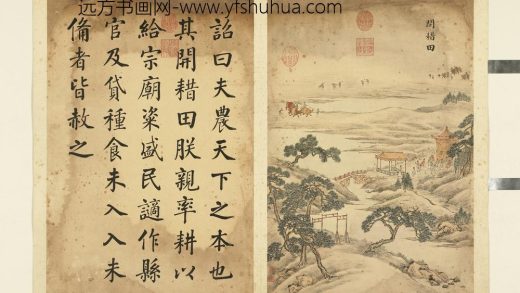 远方书画网-www.yfshuhua.com
詔曰夫農天下之本也
其開耤田朕親率耕以
給宗廟粢盛民讁作縣
官及貸種食未入入未
備者皆赦之
開耤田